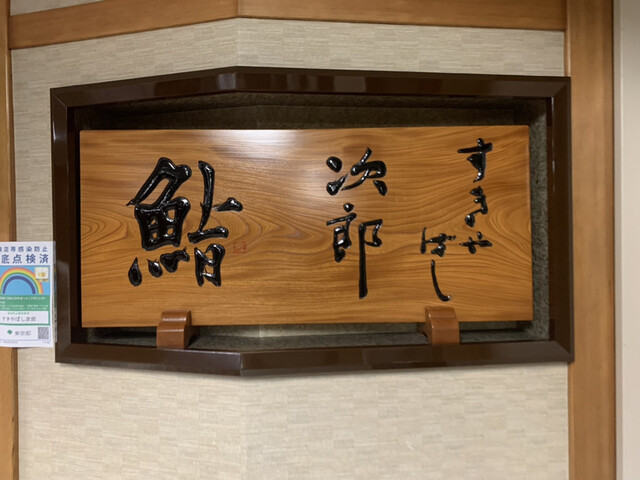 すきやばし
次郎
鮨
徹底点検済
すきやばし次郎
東京都